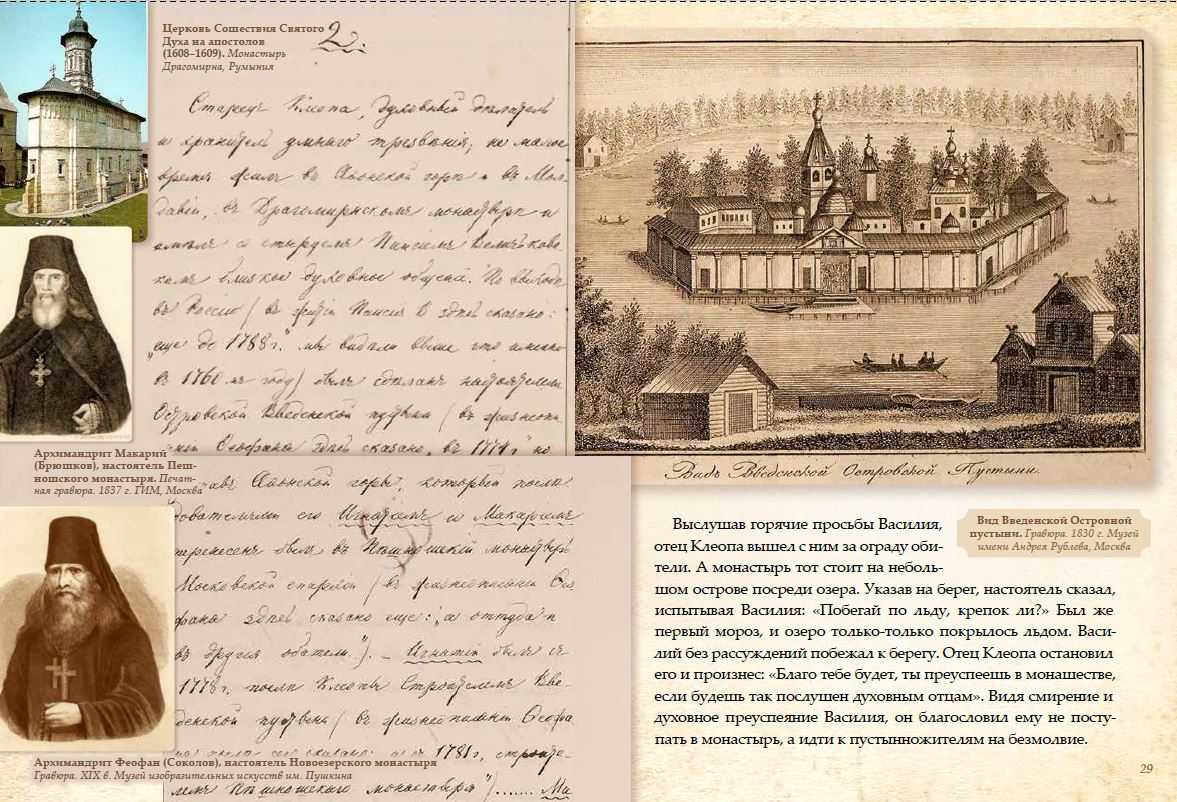 Церковь Сошествия Святого
Духа на апостолов
(1608–1609). Монастырь
Драгомирна, Румыния
2.
Старецъ Клеопа, духовный дѣлатель
и хранитель умнаго трезвѣнія, не малое
время жилъ въ Аѳонской горѣ и въ Мол-
давіи, въ Драгомирнскомъ монастырѣ и
имѣлъ съ старцемъ Паисіемъ Величков-
скимъ близкое духовное общеніе. По выходѣ
въ Россію (въ житіи Паисія В здѣсь сказано:
„аще до 1788 г." мы видѣли выше что именно
въ 1760 мъ году) былъ сдѣланъ настоятелемъ
Островской Введенской пустыни (въ жизнеопи-
Ѳеофана здѣсь сказано, въ 1774
уставъ Аѳонской горы, который послѣ-
дователями его Игнатіемъ и Макаріемъ
перенесенъ былъ въ Пѣшношскій монастырь
Московской епархіи (въ жизнеописаніи Ѳео-
фана здѣсь сказано еще: „а оттуда и
въ другія обители"). – Игнатій былъ съ
1778 г. послѣ Клеопы Строителемъ Вве-
денской пустыни (въ жизнеописаніи Ѳеофа
сказано: а съ 1781 г. строите-
лемъ Пѣшношскаго монастыря")....... Ма
Архимандрит Макарий
(Брюшков), настоятель Пеш-
ношского монастыря. Печат-
ная гравюра. 1837 г. ГИМ, Москва
Архимандрит Феофан (Соколов), настоятель Новоезерского монастыря
Гравюра. XIX в. Музей изобразительных искусств им. Пушкина
Видъ Введенской Островской Пустыни.
Вид Введенской Островной
пустыни. Гравюра. 1830 г. Музей
имени Андрея Рублева, Москва
Выслушав горячие просьбы Василия,
отец Клеопа вышел с ним за ограду оби-
тели. А монастырь тот стоит на неболь-
шом острове посреди озера. Указав на берег, настоятель сказал,
испытывая Василия: «Побегай по льду, крепок ли?» Был же
первый мороз, и озеро только-только покрылось льдом. Васи-
лий без рассуждений побежал к берегу. Отец Клеопа остановил
его и произнес: «Благо тебе будет, ты преуспеешь в монашестве,
если будешь так послушен духовным отцам». Видя смирение и
духовное преуспеяние Василия, он благословил ему не посту-
пать в монастырь, а идти к пустынножителям на безмолвие.
29